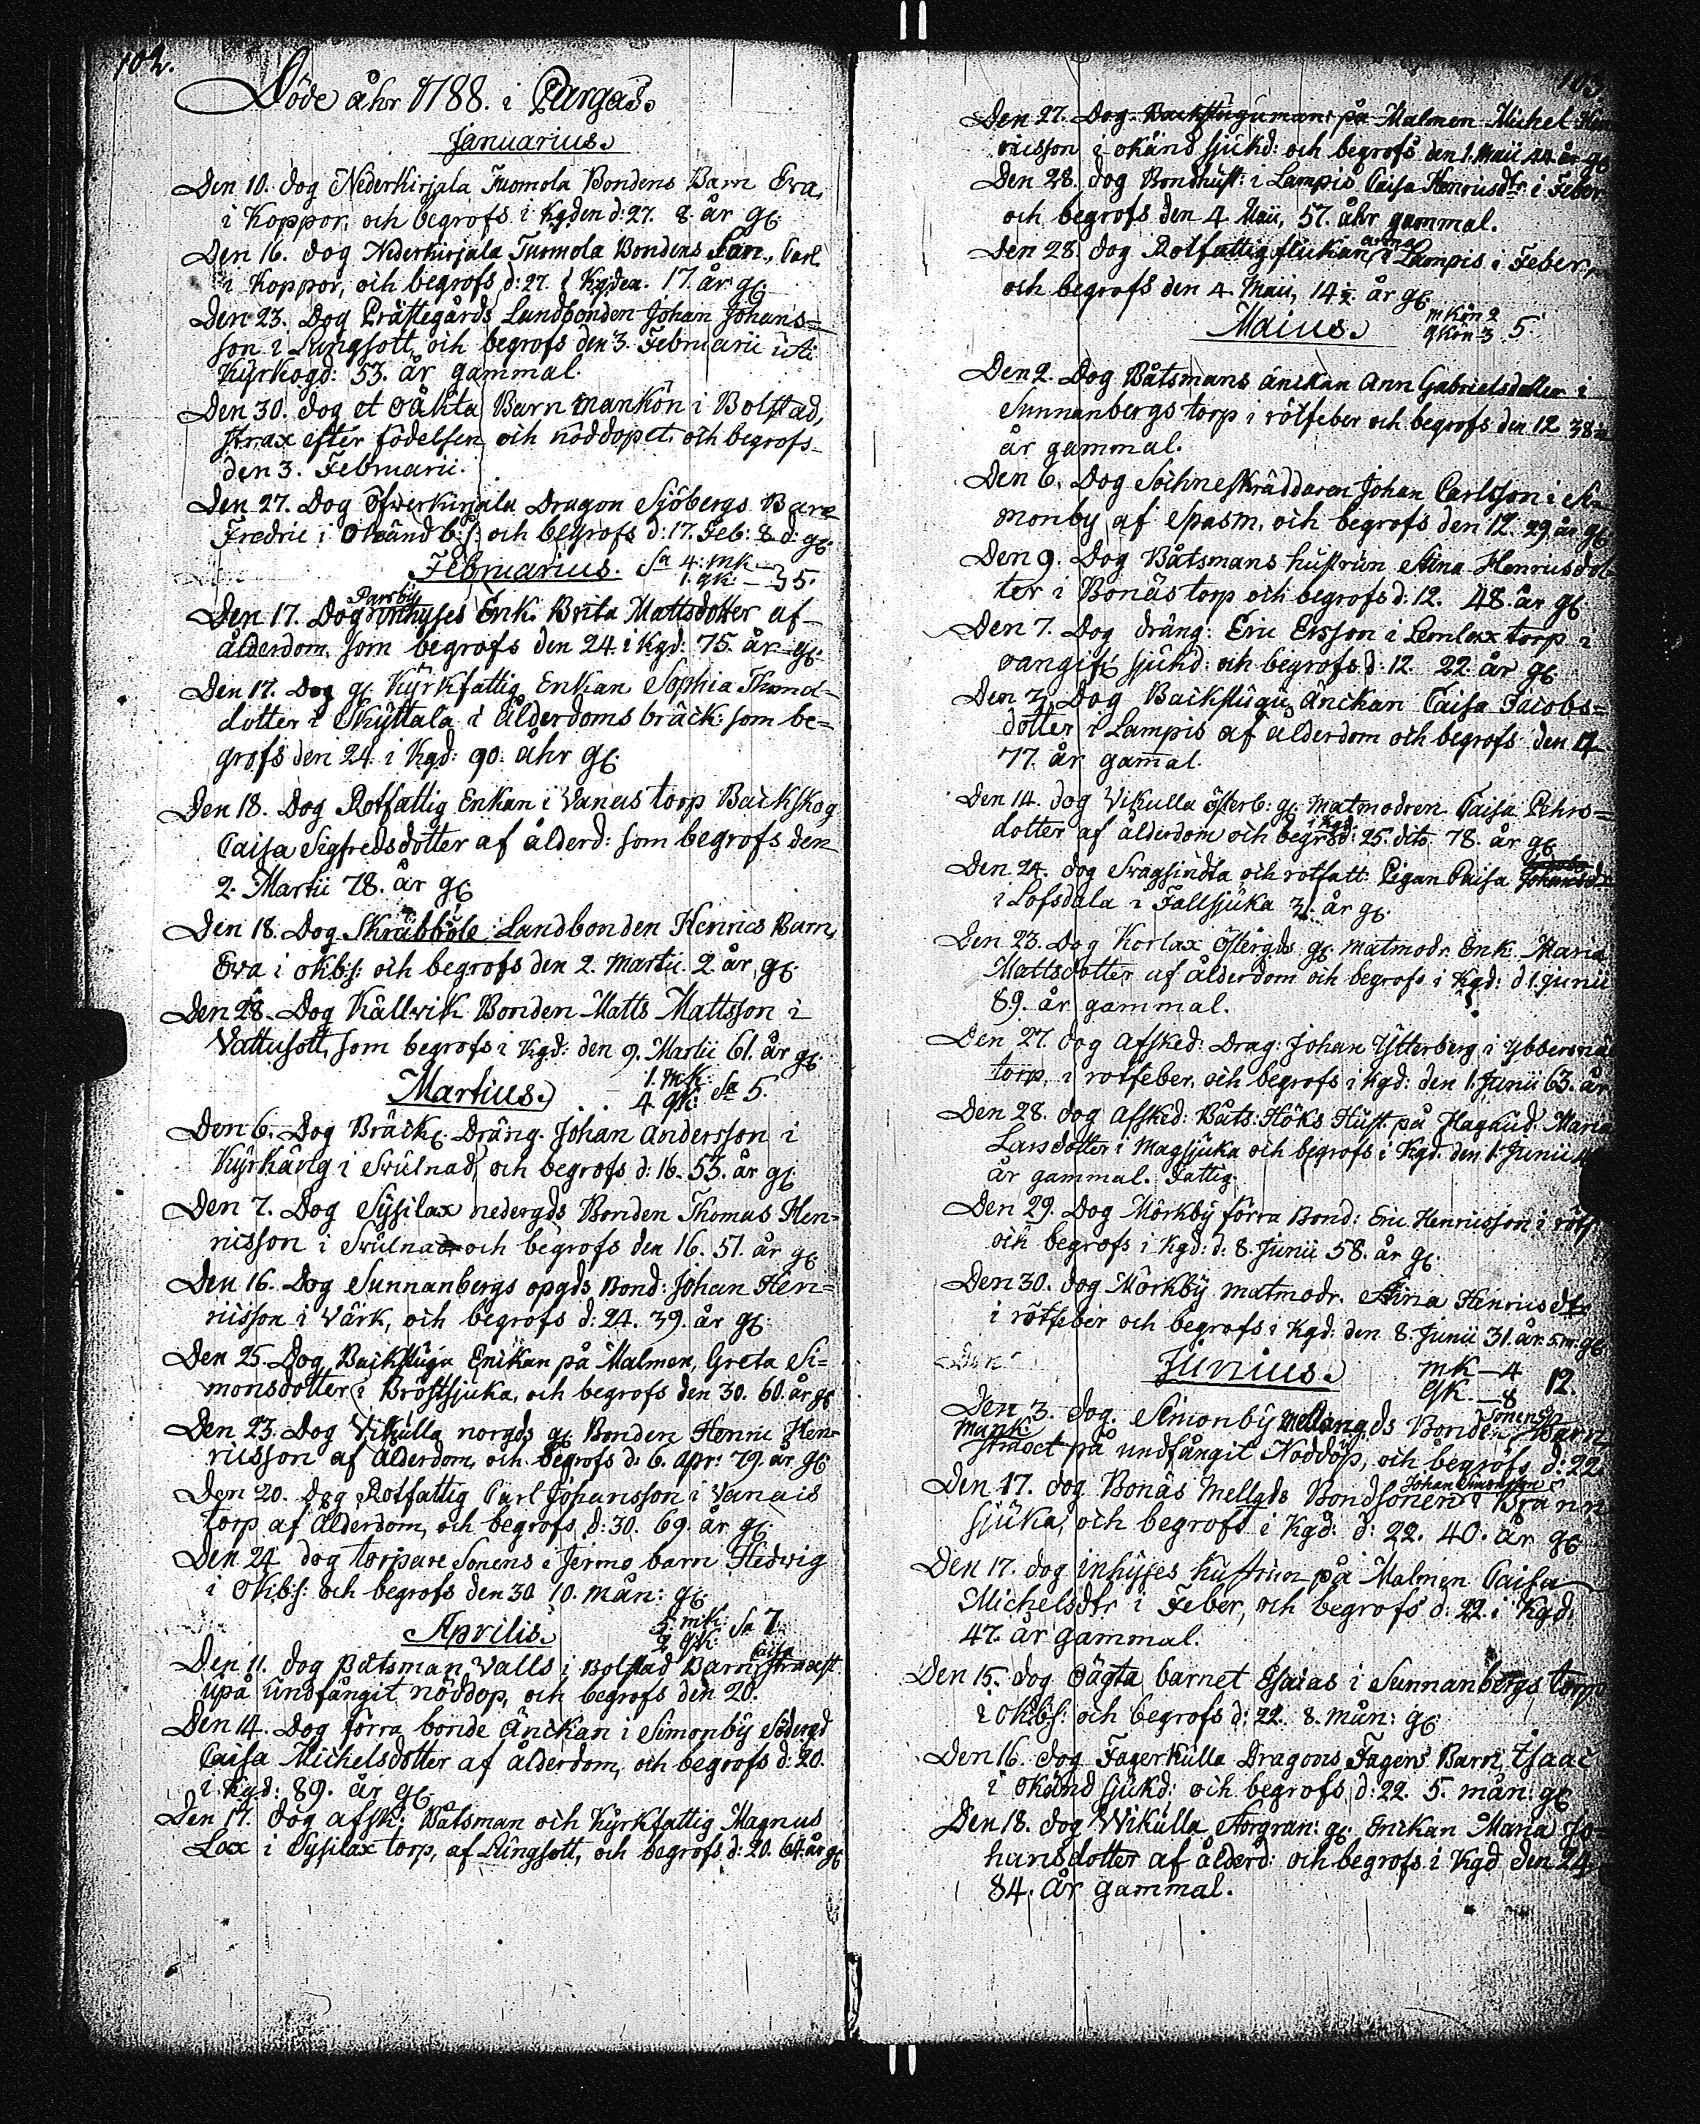 102.
Döde åhr 1788. i Pargas.
Januarius.
Den 10. dog Nederkirjala Tuomola Bondens Barn Eva,
i Koppor, och begrofs i Kgden d: 27. 8. år gl.
Den 16. dog Nederkirjala Tuomola Bondens Son, Carl
i Koppor, och begrofs d: 27. i Kgden. 17. år gl.
Den 23. Dog Prästegårds Landbonden Johan Johans=
son i Lungsott, och begrofs den 3. Februarii uti
Kyrkogd: 53. år gammal.
Den 30. dog et oäkta Barn mankön i Bolstad,
strax efter födelsen och nöddopet, och begrofs
den 3. Februarii.
Den 27. Dog Öfverkirjala Dragon Sjöbergs Barn
Fredric i Okänd b:s: och begrofs d: 17. Feb: 8 d: gl.
Februarius. Sa 4: mk
1. qk: — 5.
Parsby
Den 17. Dog inhyses Enk. Brita Mattsdotter af
ålderdom, som begrofs den 24. i Kgd: 75. år gl.
Den 17. Dog gl. Kyrkfattig Enkan Sophia Thomd-
dotter i Skyttala i Ålderdoms bräck: som be=
grofs den 24. i Kgd: 90. åhr gl.
Den 18. Dog Rotfattig Enkan i Vanas torp Backskog
Caisa Sigfredsdotter af ålderd: som begrofs den
2. Martii 78. år gl.
Den 18. Dog Skräbböle Landbonden Henrics Barn,
Eva i okb:s: och begrofs den 2. Martii. 2. år gl.
Den 28. Dog Källvik Bonden Matts Mattsson i
Vattusott, som begrofs i Kgd: den 9. Martii 61. år gl.
Martius. 1. mk:
4. qk: Sa 5.
Den 6. Dog Bräckl. Dräng. Johan Andersson i
Kyrkäng i Svulnad, och begrofs d: 16. 53. år gl.
Den 7. Dog Sysilax nedergds Bonden Thomas Hen=
ricsson i Svulnad och begrofs den 16. 51. år gl.
Den 16. Dog Sunnanbergs opgds Bond: Johan Hen=
ricsson i Värk, och begrofs d: 24. 39. år gl.
Den 25. Dog Backstugu Enkan på Malmen, Greta Si=
monsdotter i Bröstsjuka, och begrofs den 30. 60. år gl
Den 23. Dog Vikulla norgds gl. Bonden Henric Hen=
ricsson af Ålderdom, och begrofs d: 6. Apr: 79. år gl.
Den 20. Dog Rotfattig Carl Johansson i Vanais
torp af Ålderdom, och begrofs d: 30. 69. år gl.
Den 24 dog torpare Sonens i Jermo barn Hedwig
i Okb:s: och begrofs den 30. 10. mån: gl.
Aprilis. 5 mk:
2 qk: Sa 7.
Caisa
Den 11. dog Båtsman Valls i Bolstad Barn straxt
upå undfångit nöddop, och begrofs den 20.
Den 14. Dog förra bonde Änckan i Simonby Södergd
Caisa Michelsdotter af ålderdom, och begrofs d: 20.
i Kgd: 89. år gl.
Den 17. dog afsk: Båtsman och Kyrkfattig Magnus
Lax i Sysilax torp, af Lungsott, och begrofs d: 20. 64. år gl
103.
Den 27. Dog Backstugumans på Malmen Michel Hen
ricsson i okänd sjukd: och begrofs den 1. Maii 44 år gl
Den 28. dog Bondhust: i Lampis Caisa Henricsdtr. i Feber,
och begrofs den 4. Maii, 57. åhr gammal.
Anna
Den 28. dog Rotfattig flickan i Lampis i Feber,
och begrofs den 4. Maii, 14½ år gl.
Maius. mkön 2
qkön 3 5.
Den 2. Dog Båtsmans änckan Ann Gabrielsdotter i
Sunnanbergs torp i rötfeber och begrofs den 12 38
år gammal.
Den 6. Dog Sochneskräddaren Johan Carlsson i Si
monby af Spasm, och begrofs den 12. 29. år gl.
Den 9. Dog Båtsmans hustrun Stina Henricsdot
ter i Bonäs torp och begrofs d: 12. 48. år gl.
Den 7. Dog dräng: Eric Ersson i Lemlax torp i
oangifl sjukd: och begrofs d: 12 22. år gl.
Den 7. Dog Backstugu Änckan Caisa Jacobs=
dotter i Lampis af ålderdom och begrofs den 17.
77. år gamal.
Den 14. dog Vikulla österb: gl. matmodren Caisa Pehrs=
i Kgd
dotter af ålderdom och begrofs d: 25. dito 78. år gl
Den 24. dog Svagsindta och rotfatt. Pigan Caisa Johansdr
i Lofsdala i Fallsjuka 31. år gl.
Den 23. Dog Korlax Östergds gl. matmodr. Enk. Maria
Mattsdotter af ålderdom och begrofs i Kgd: d 1. Junii
89. år gammal.
Den 27. dog Afsked: Drag: Johan Ytterberg i Ybbersnäs
torp, i rotfeber, och begrofs i Kgd: den 1. Junii 63. år
Den 28. dog Afsked: Båts: Höks Hust. på Hagaud. Maria
Larsdotter i Magsjuka och begrofs i Kgd. den 1. Junii
år gammal. Fattig.
Den 29. Dog Mörkby förra Bond: Eric Henricsson i rötf.
och begrofs i Kgd: d: 8. Junii 58. år gl.
Den 30. dog Mörkby matmodr. Stina Henricsdtr
i rötfeber och begrofs i Kgd: den 8. Junii 31. år 5 m. gl
Den Junius. mk — 4
qk. — 8 12.
Den 3. dog. Simonby mellangds Bonde Sonens Barn,
Mank.
straxt på undfångit Nöddop, och begrofs d: 22
Johan Simonsson
Den 17. dog Bonäs Mellgds Bondsonen i Bränn
sjuka, och begrofs i Kgd: d: 22. 40. år gl
Den 17. dog inhyses hustrun på Malmen Caisa
Michelsdtr i Feber, och begrofs d: 22. i Kgd:
47. år gammal.
Den 15. dog Oägta barnet Esaias i Sunnanbergs torp
i Okb:s: och begrofs d: 22. 8. mån: gl.
Den 16. dog Fagerkulla Dragons Fagers Barn, Isaac
i okänd sjukd: och begrofs d: 22. 5. mån: gl
Den 18. dog Wikulla Norgran: gl. Enckan Maria Jo=
hansdotter af ålderd: och begrofs i Kgd den 24.
84. år gammal.